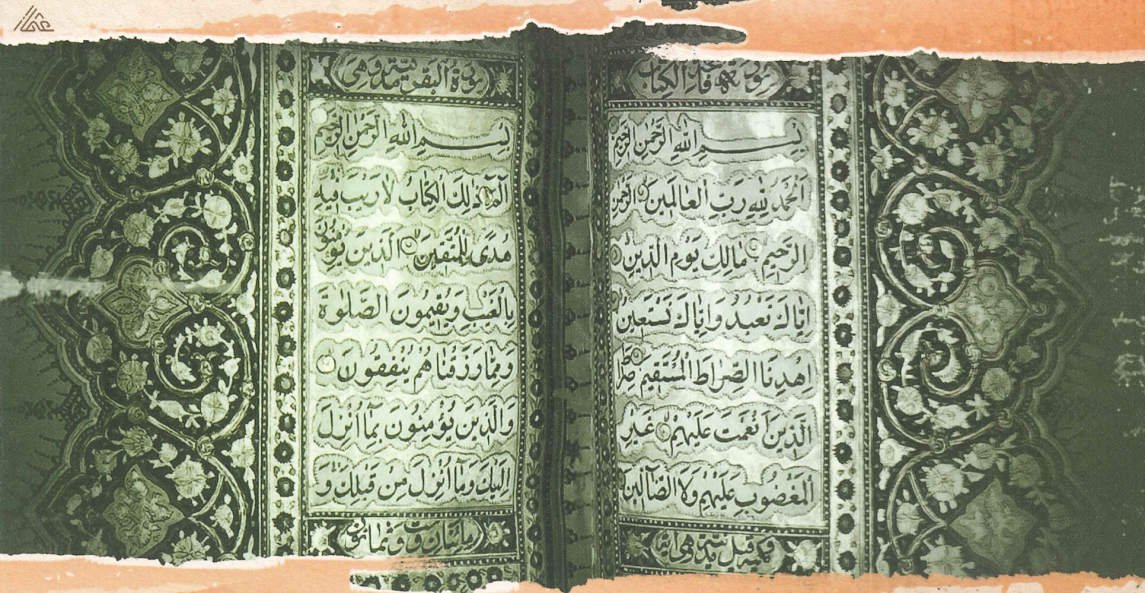 سورة فاتحة الكتاب
بِسْمِ اللهِ الرَّحْمٰنِ الرَّحِيمِ
اَلْحَمْدُ لِلّٰهِ رَبِّ الْعَالَمِينَ الرَّحْمٰنِ
الرَّحِيمِ مَالِكِ يَوْمِ الدِّينِ
اِيَّاكَ نَعْبُدُ وَاِيَّاكَ نَسْتَعِينُ
اِهْدِنَا الصِّرَاطَ الْمُسْتَقِيمَ صِرَاطَ
الَّذِينَ اَنْعَمْتَ عَلَيْهِمْ غَيْرِ
الْمَغْضُوبِ عَلَيْهِمْ وَلَا الضَّالِّينَ
سورة البقرة وهي
بِسْمِ اللهِ الرَّحْمٰنِ الرَّحِيمِ
الم ذٰلِكَ الْكِتَابُ لَا رَيْبَ فِيهِ
هُدًى لِلْمُتَّقِينَ الَّذِينَ يُؤْمِنُونَ
بِالْغَيْبِ وَيُقِيمُونَ الصَّلٰوةَ
وَمِمَّا رَزَقْنَاهُمْ يُنْفِقُونَ
وَالَّذِينَ يُؤْمِنُونَ بِمَا اُنْزِلَ
اِلَيْكَ وَمَا اُنْزِلَ مِنْ قَبْلِكَ وَ